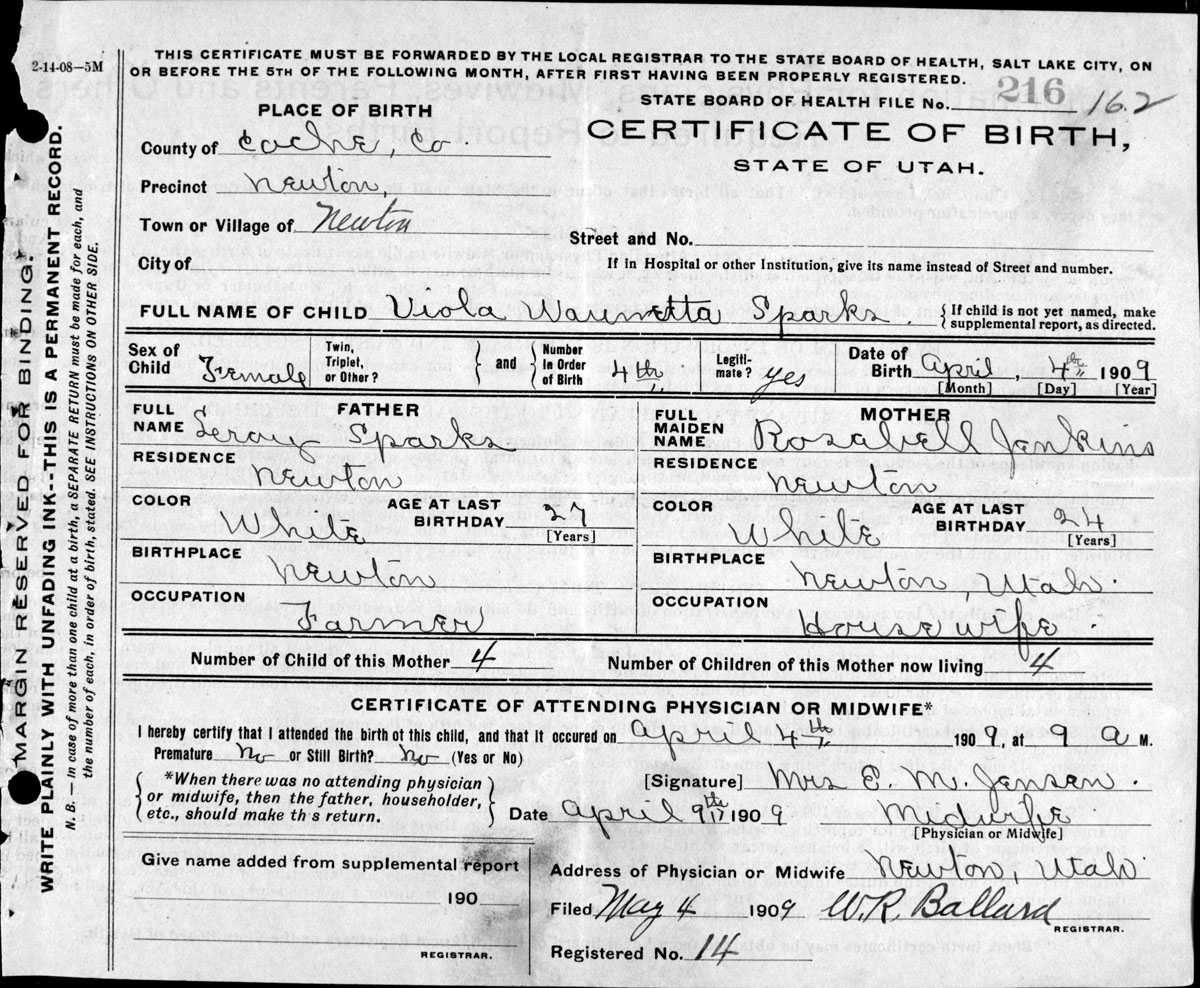 2-14-08—5M
THIS CERTIFICATE MUST BE FORWARDED BY THE LOCAL REGISTRAR TO THE STATE BOARD OF HEALTH, SALT LAKE CITY, ON
OR BEFORE THE 5TH OF THE FOLLOWING MONTH, AFTER FIRST HAVING BEEN PROPERLY REGISTERED.
PLACE OF BIRTH
STATE BOARD OF HEALTH FILE No. 216 162
CERTIFICATE OF BIRTH,
STATE OF UTAH.
County of Cache, Co.
Precinct Newton,
Town or Village of Newton
Street and No.
City of
If in Hospital or other Institution, give its name instead of Street and number.
FULL NAME OF CHILD Viola Waunetta Sparks.
{ If child is not yet named, make
supplemental report, as directed.
Sex of Child Female
Twin, Triplet, or Other? } and { Number in Order of Birth 4th
Legiti- mate? yes
Date of Birth April, 4th 1909
[Month] [Day] [Year]
FATHER
FULL NAME Leroy Sparks
RESIDENCE Newton
COLOR White
AGE AT LAST BIRTHDAY 27
[Years]
BIRTHPLACE Newton
OCCUPATION Farmer
MOTHER
FULL MAIDEN NAME Rosabell Jenkins
RESIDENCE Newton
COLOR White
AGE AT LAST BIRTHDAY 24
[Years]
BIRTHPLACE Newton, Utah.
OCCUPATION Housewife.
Number of Child of this Mother 4 Number of Children of this Mother now living 4
CERTIFICATE OF ATTENDING PHYSICIAN OR MIDWIFE*
I hereby certify that I attended the birth of this child, and that it occured on April 4th, 1909, at 9 a M.
Premature No or Still Birth? No (Yes or No)
{ *When there was no attending physician
or midwife, then the father, householder,
etc., should make th s return. }
[Signature] Mrs E. M. Jensen.
Date April 9th 1909 Midwife
[Physician or Midwife]
Give name added from supplemental report
190
REGISTRAR.
Address of Physician or Midwife Newton, Utah.
Filed May 4 1909 W.R. Ballard
REGISTRAR.
Registered No. 14
MARGIN RESERVED FOR BINDING.
WRITE PLAINLY WITH UNFADING INK--THIS IS A PERMANENT RECORD.
N. B. — In case of more than one child at a birth, a SEPARATE RETURN must be made for each, and
the number of each, in order of birth, stated. SEE INSTRUCTIONS ON OTHER SIDE.